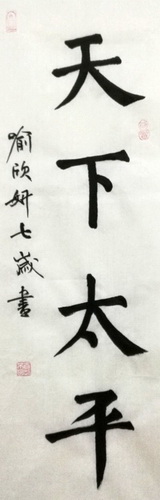 天下太平
喻欣妍七岁書